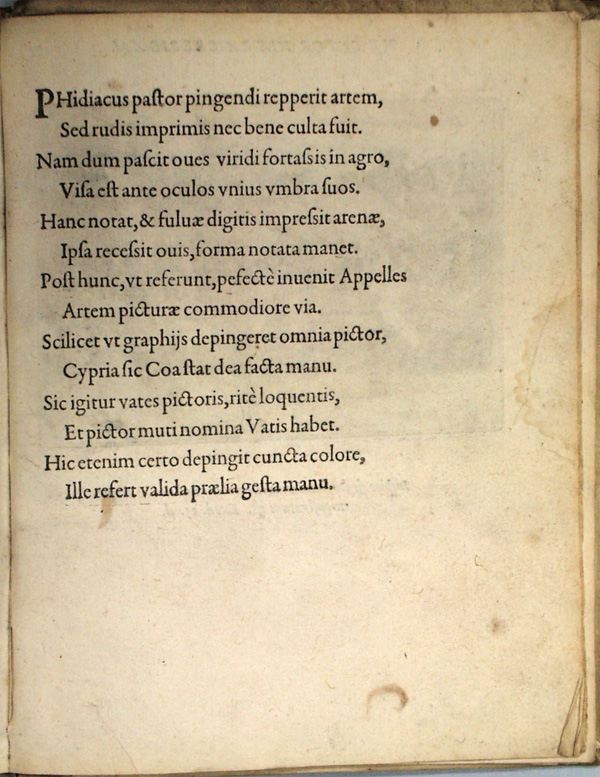 PHidiacus paſtor pingendi repperit artem,
Sed rudis imprimis nec bene culta fuit.
Nam dum paſcit oues viridi fortaſsis in agro,
Viſa eſt ante oculos vnius vmbra ſuos.
Hanc notat, & fuluæ digitis impreſsit arenæ,
Ipſa receſsit ouis, forma notata manet.
Poſt hunc, vt referunt, pefectè inuenit Appelles
Artem picturæ commodiore via.
Scilicet vt graphijs depingeret omnia pictor,
Cypria ſic Coa ſtat dea facta manu.
Sic igitur vates pictoris, ritè loquentis,
Et pictor muti nomina Vatis habet.
Hic etenim certo depingit cuncta colore,
Ille refert valida prælia geſta manu.